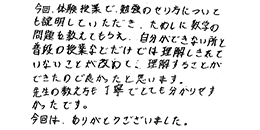 今回、体験授業で、勉強のせり方についても
も説明していただき、ためしに数学の
問題も教えてもらえ、自分ができない所と
普段の授業などだけでは理解しきれて
いないことが改めて、理解することが
できたので良かったと思います。
先生の教え方も丁寧でとても分かりやす
かったです。
今回は、ありがとうございました。